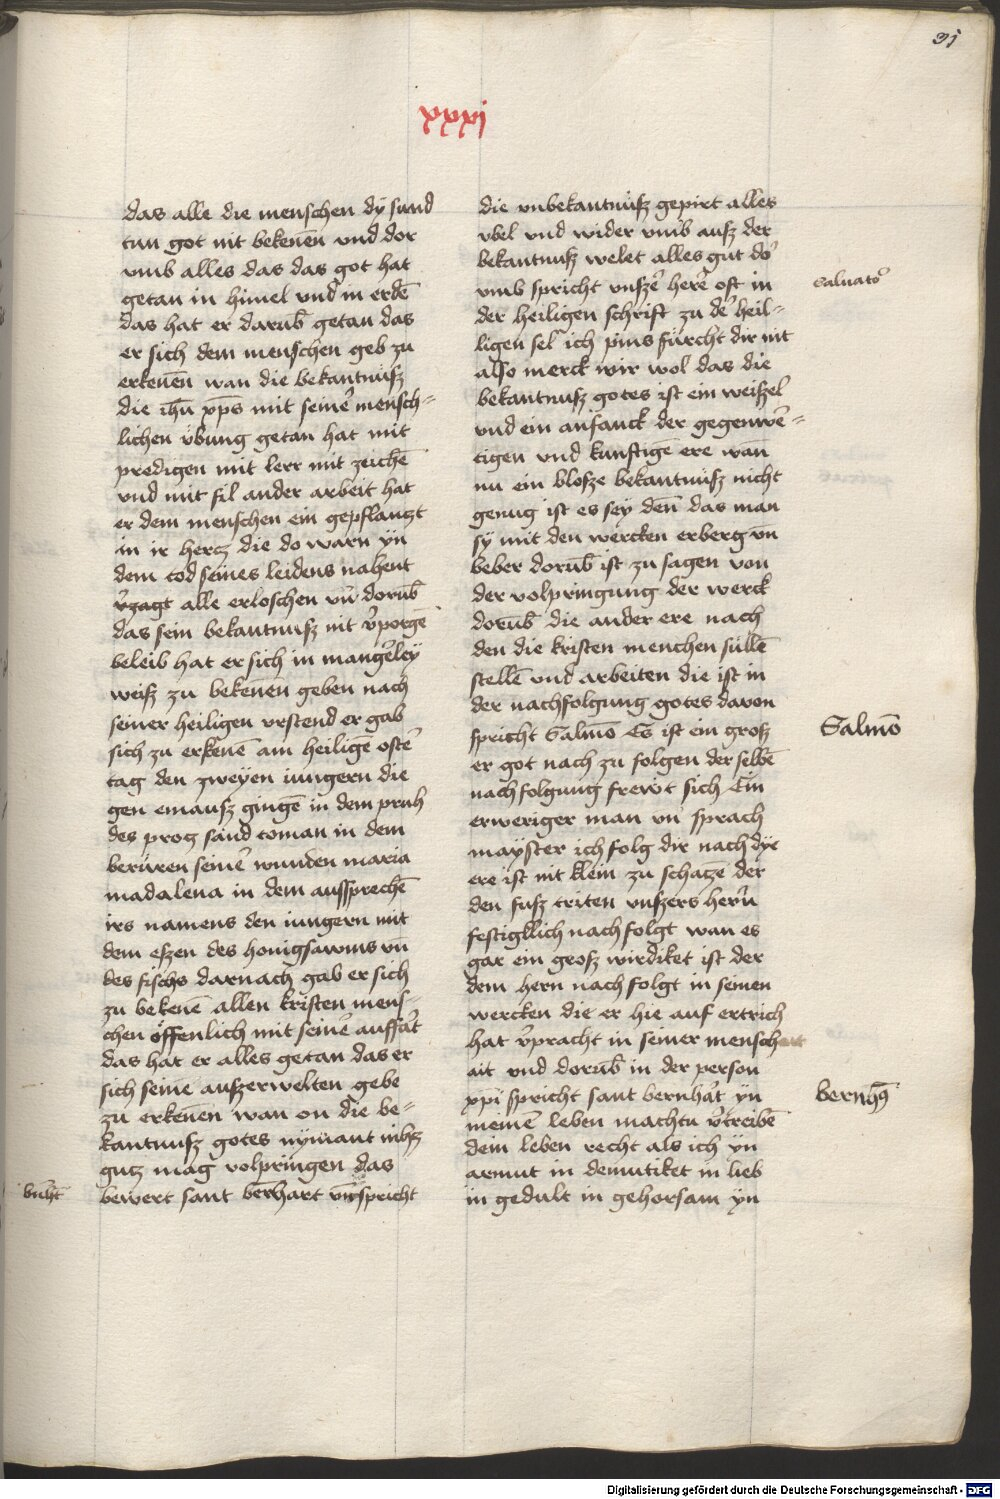 31
xxxj
das alle die menschen dÿ sund
tun got nit bekenen̄ vnd dor
vmb alles das das got hat
getan in himel vnd in erdē
das hat er darub̄ getan das
er sich dem menschen geb zu
erkenen̄ wan die bekantnúsz
die ihū xp̄s mit seinē mensch-
lichen v̈bung getan hat mit
predigen mit lerr mit zeichē
vnd mit fil ander arbeit hat
er dem menschen ein gepflantzt
in ir hertz die do warn ÿn
dem tod seines leidens nahent
v̄zagt alle erloschen vn̄ dorub̄
das sein bekantnusz nit v̄porgē
beleib hat er sich in mangerleÿ
weisz zu bekenen̄ geben nach
seiner heiligen vrstend er gab
sich zu erkenē am heiligē ostē
tag den zweÿen iungern die
gen emausz gingē in dem pruch
des protz sand toman in dem
berúren seinē wunden maria
madalena in dem aussprechē
irs namens den iungern mit
dem eszen des honigsawms vn̄
des fischs darnach gab er sich
zu bekenē allen kristen mens-
chen öffenlich mit seinē auffāt
das hat er alles getan das er
sich seine auszerwelten gebe
zu erkenen̄ wan on die be-
kantnusz gotes nÿmant nihtz
gutz mag volpringen das
bewert sant bernhart vn̄ spricht
bn̄ht
die vnbekantnúsz gepirt alles
vbel vnd wider vmb ausz der
bekantnusz welet alles gut dō
vmb spricht vnszē herē oft in
der heiligen schrift zu dē heil-
ligen sel ich pins fúrcht dir nit
also merck wir wol das die
bekantnusz gotes ist ein weiszel
vnd ein anfanck der gegenwē-
tigen vnd kunftigē ere wan̄
nu ein blosze bekantnúsz nicht
genug ist es seÿ den̄ das man
sÿ mit den wercken erberg vn̄
beber dorub̄ ist zu sagen von
der volpringung der werck
dorub̄ die ander ere nach
den die kristen menchen súllē
stellē vnd arbeiten die ist in
der nachfolgung gotes davon
spricht Salmō Es ist ein grosz
er got nach zu folgen der selbē
nachfolgung frewt sich Ein
erweriger man vn̄ sprach
maÿster ich folg dir nach dÿe
ere ist nit klein zu schatzē der
den fusz triten vnszers hern̄
festigklich nach folgt wan es
gar ein grosz wirdiket ist der
dem hern nach folgt in seinen
wercken die er hie auf ertrich
hat v̄pracht in seiner mensch
ait vnd dorub̄ in der person
xp̄i spricht sant bernhāt ÿn
meinē leben machtu v̄treibē
dein leben recht als ich ÿn
armut in demutiket in lieb
in gedult in gehorsam ÿn
Saluatō
Salmō